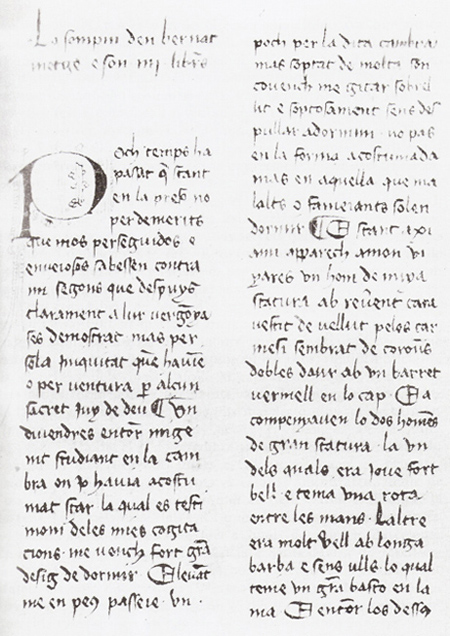 Lo sompni den bernat
metge e son iiii libres
Poch temps ha
pasat q stant
en la preso no
per demerits
que mos perseguidos e
enveiosos sabessen contra
mi segons que despuys
clarament a lur vergonya
ses demostrat mas per
sola iniquitat que havie
o per ventura p alcun
secret iuy de deu Un
divendres entorn mige
nit studiant en la cam
bra on jo havia acostu
mat star la qual es testi
moni deles mies cogita
cions me vench fort gra
desig de dormir E levat
me en peus passeie un
poch per la dita cambra
mas soptat de molta son
covench me gitar sobrel
lit e soptosament sens des
pullar adormim no pas
en la forma acostumada
mas en aquella que ma
lalts o famejants solen
dormir E stant axi
ami apparech amon vi
yares un hom de miga
statura ab reverent cara
vestit de vellut pelos car
mesi sembrat de corones
dobles daur ab un barret
vermell en lo cap E a
companyaven lo dos homens
de gran statura la un
dels quals era jove fort
bell e tenia una rota
entre les mans Laltre
era molt vell ab longa
barba e sens ulls lo qual
tenie un gra basto en la
ma E entorn los dessus